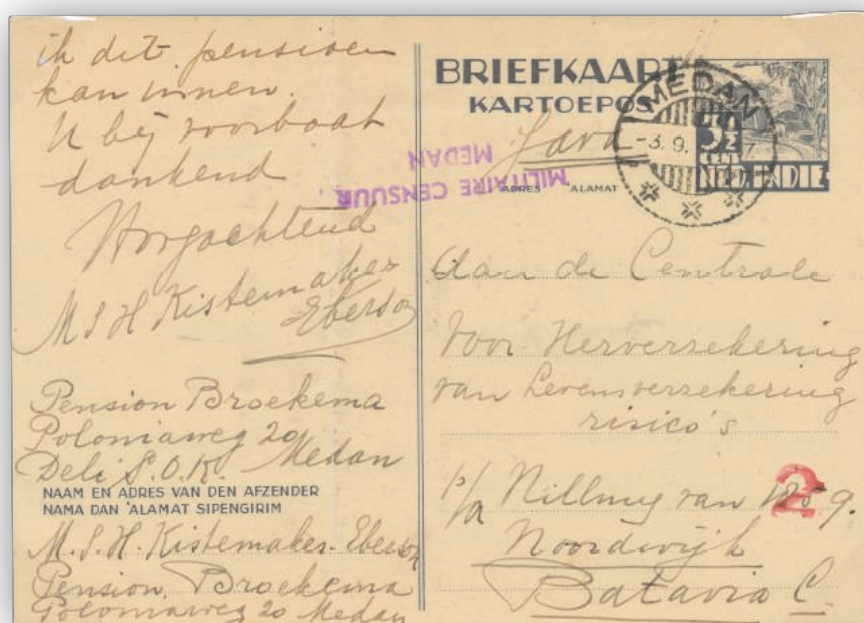 ik dit pensioen
kan innen.
U bij voorbaat
dankend
Hoogachtend
M S H Kistemaker
Eberson
Pension Broekema
Poloniaweg 20
Deli S.O.K. Medan
NAAM EN ADRES VAN DEN AFZENDER
NAMA DAN 'ALAMAT SIPENGIRIM
M.S.H. Kistemaker-Eberson
Pension Broekema
Poloniaweg 20 Medan
BRIEFKAART
KARTOEPOS
MEDAN
-3.9.
3½
CENT
NED.INDIE
Java
MILITAIRE CENSUUR
MEDAN
ADRES 'ALAMAT
Aan de Centrale
voor Herverzekering
van Levensverzekering
risico's
p/a Nillmy van 1859.
2
Noordwijk
Batavia C.